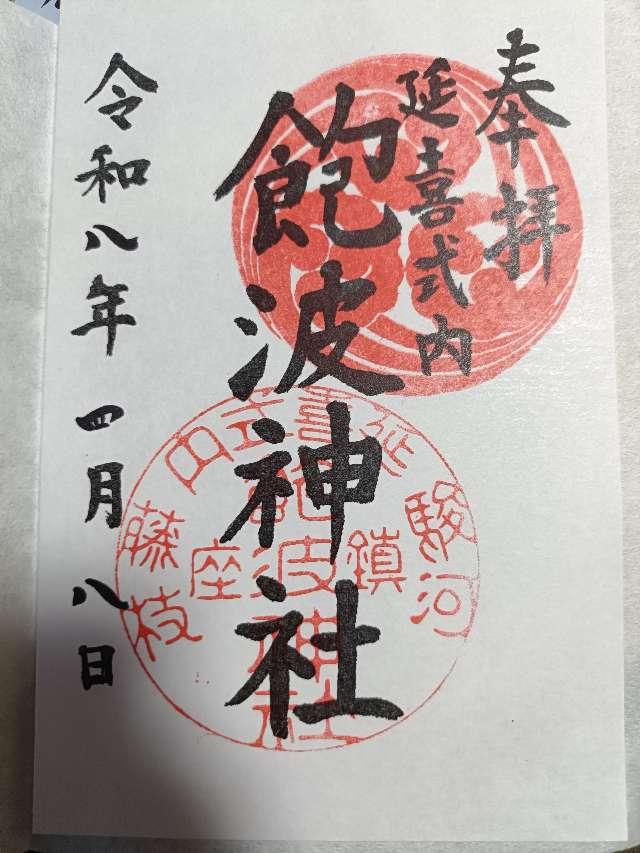 奉拝
延喜式内
飽波神社
令和八年 四月 八日
駿河
延喜式内
藤枝
鎮座
飽波神社